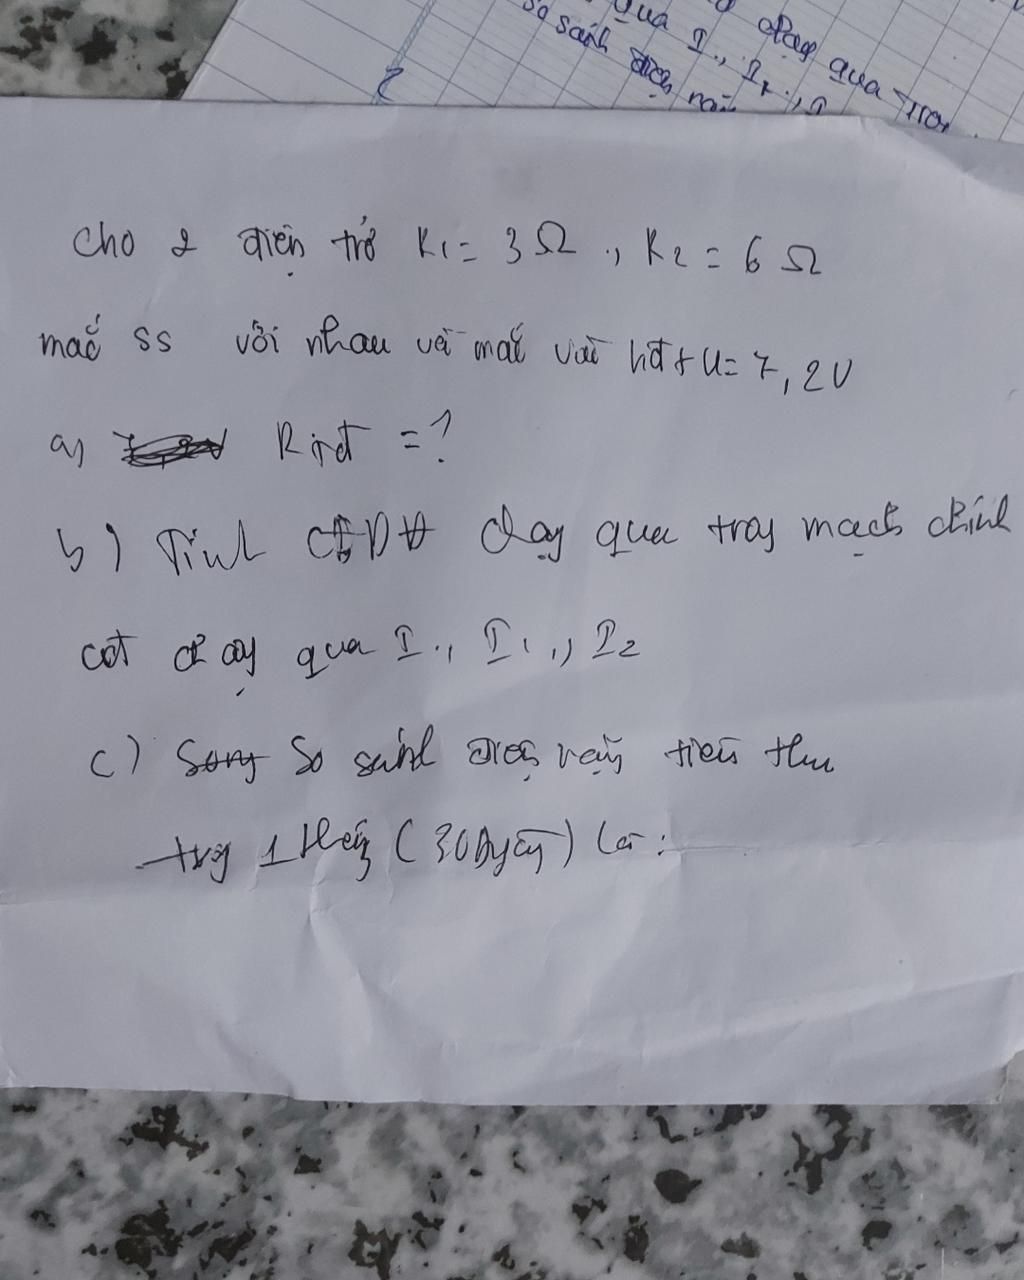 qua I., I2., I
chạy qua trog
so sánh điện năn
Cho 2 điện trở R1 = 3 Ω ., R2 = 6 Ω
mắc ss với nhau và mắc vào hđt U= 7,2V
a) Rtđ = ?
b) Tính CĐDĐ chạy qua trog mạch chính
cđt chạy qua I., I1., I2
c) So sánh điện năng tiêu thụ
trg 1 tháng (30 ngày) là: